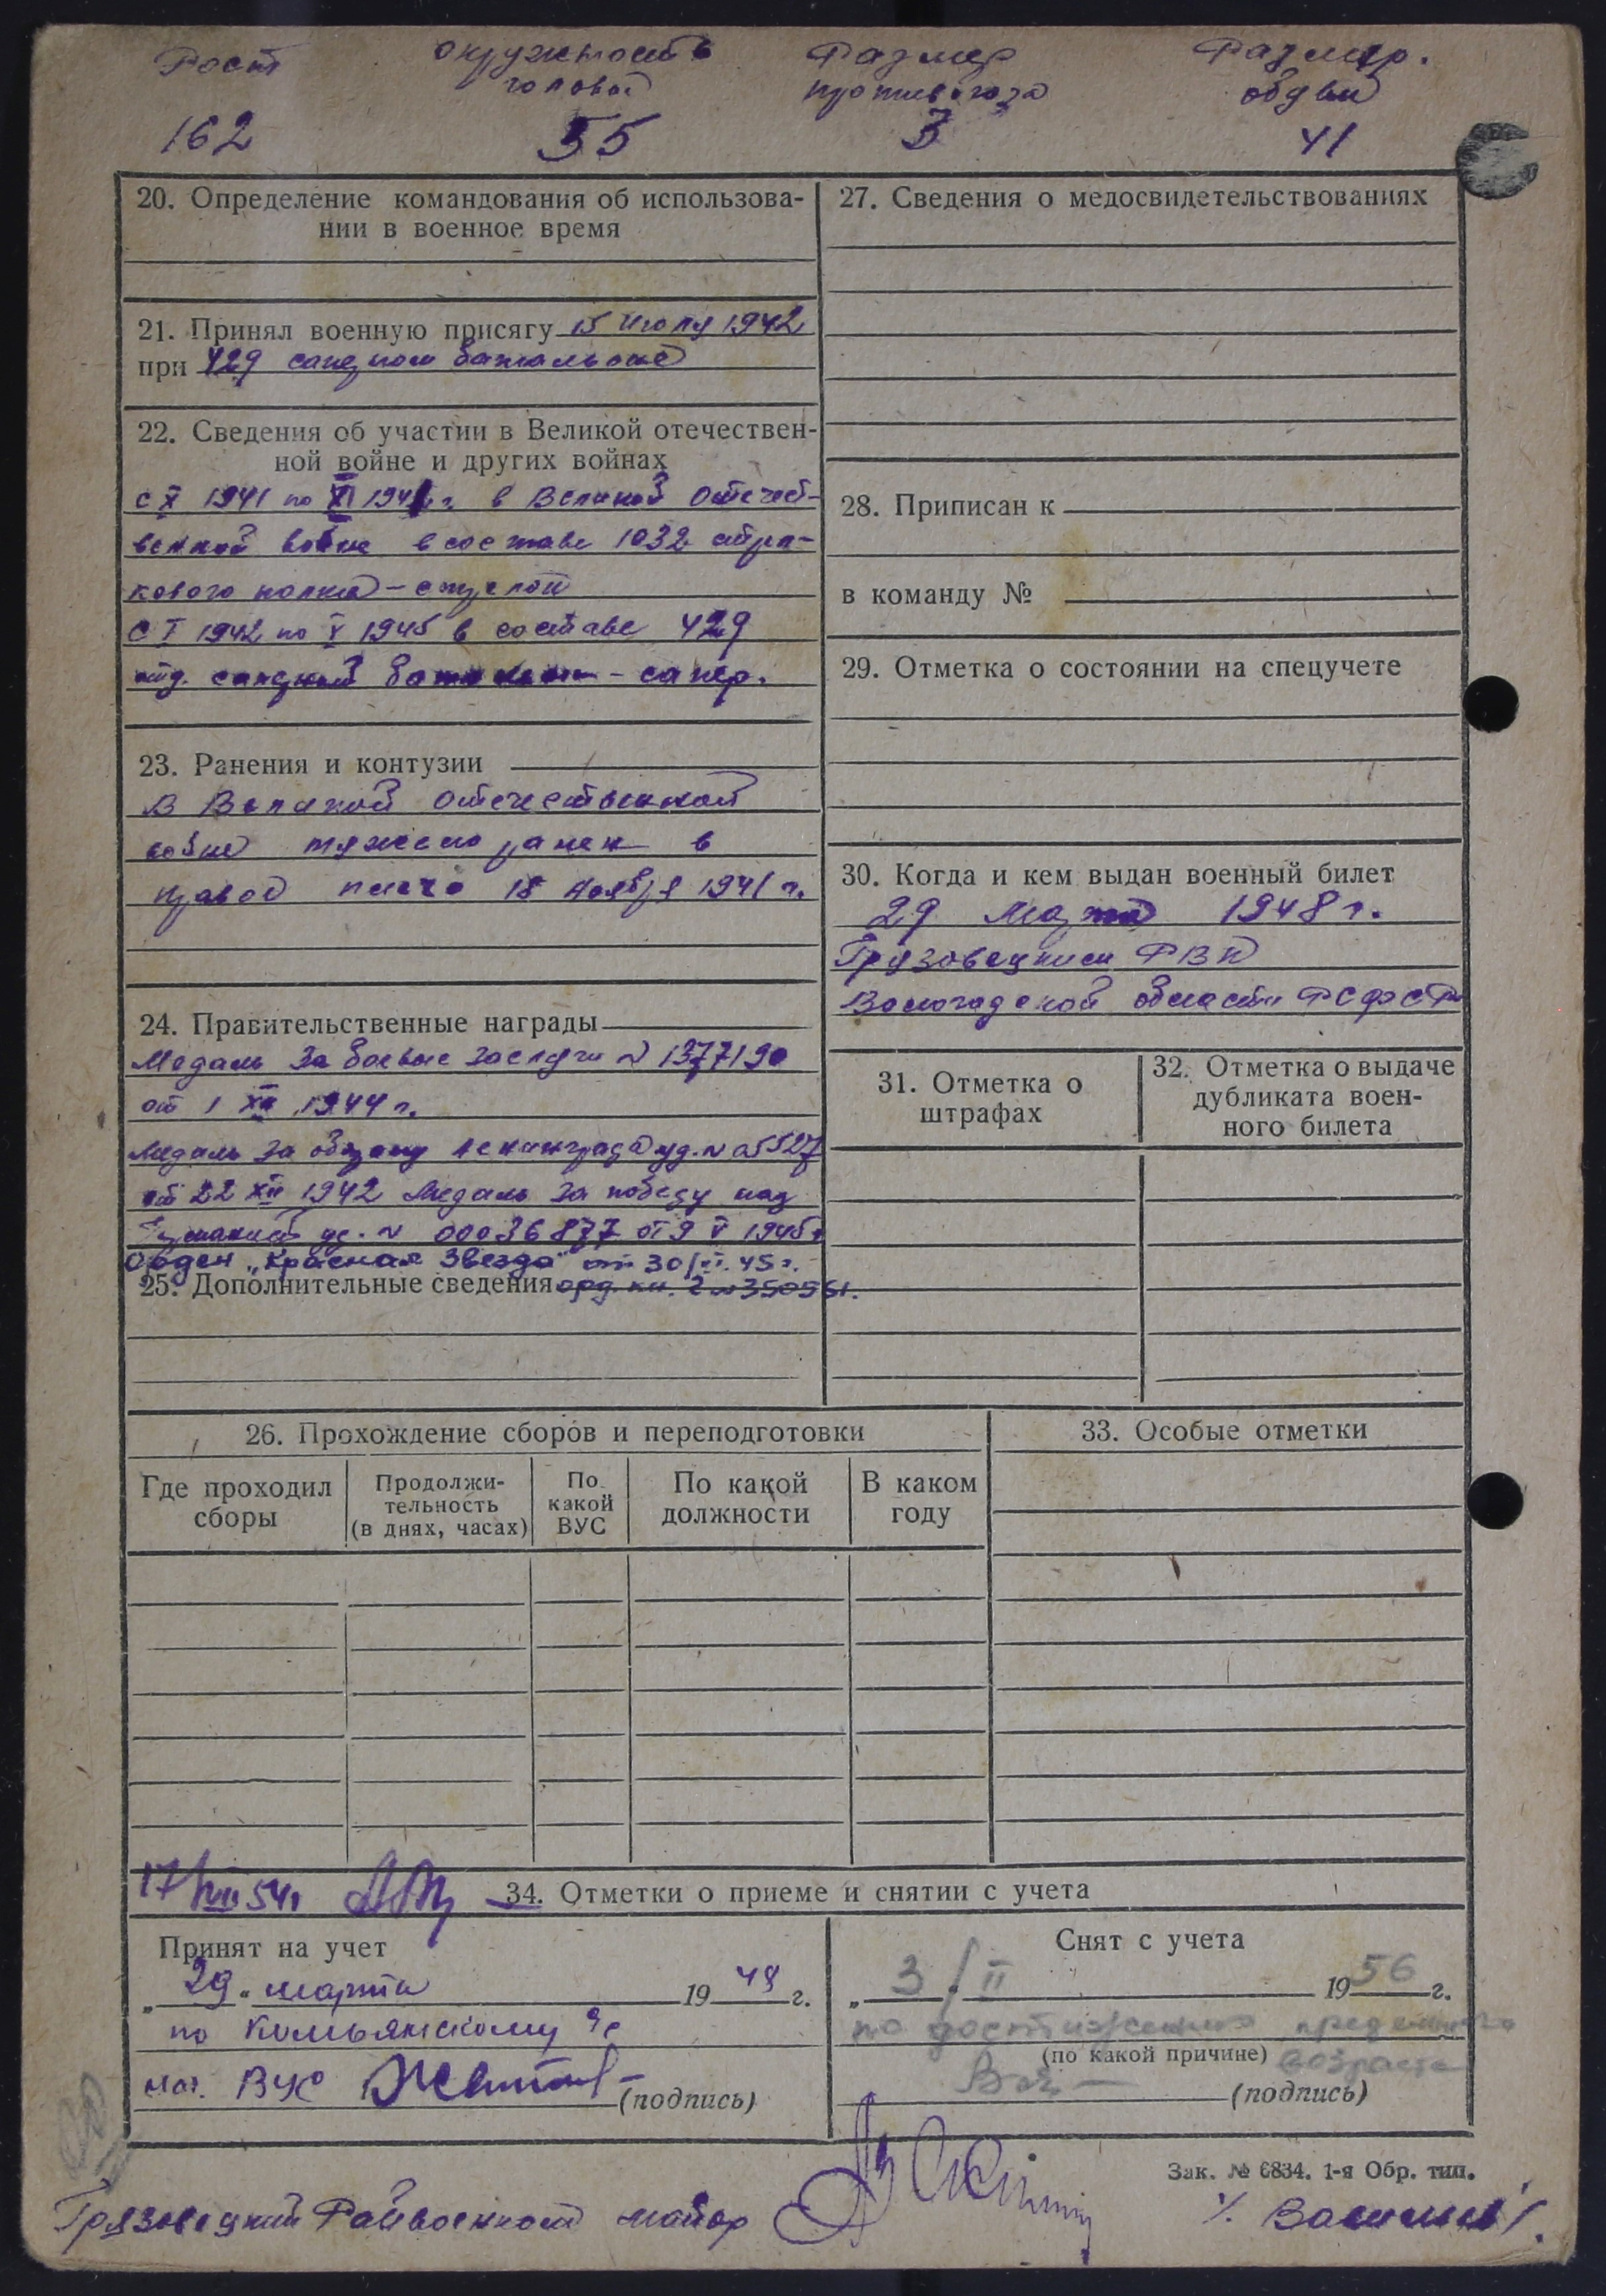 Рост окружность Размер Размер.
головы противогаза обуви
162 55 3 41
20. Определение командования об использова-
нии в военное время
21. Принял военную присягу 15 июля 1942
при 429 саперном батальоне
22. Сведения об участии в Великой отечествен-
ной войне и других войнах
с X 1941 по XI 1941 г. в Великой Отечест-
венной войне в составе 1032 стрл-
кового полка – стрелок
С I 1942 по V 1945 в составе 429
отд. саперный батальон – сапер.
23. Ранения и контузии
В Великой Отечественной
войне тяжело ранен в
правое плечо 18 ноября 1941 г.
24. Правительственные награды
Медаль За боевые заслуги № 1377190
от 1 XII 1944 г.
Медаль За оборону Ленинграда уд. №
от 22 XII 1942 Медаль За победу над
Германией уд. № 00036877 от 9 V 1945 г
Орден „Красная Звезда" от 30/VI. 45 г.
25. Дополнительные сведения орд. кн. 2 № 350561.
26. Прохождение сборов и переподготовки
Где проходил сборы
Продолжи-
тельность
(в днях, часах)
По
какой
ВУС
По какой
должности
В каком
году
27. Сведения о медосвидетельствованиях
28. Приписан к
в команду №
29. Отметка о состоянии на спецучете
30. Когда и кем выдан военный билет
29 Марта 1948 г.
Грязовецким РВК
Вологодской области РСФСР
31. Отметка о
штрафах
32. Отметка о выдаче
дубликата воен-
ного билета
33. Особые отметки
17/VIII 54 г
34. Отметки о приеме и снятии с учета
Принят на учет
„29" марта 1948 г.
по Комьянскому с/с
нач. ВУС (подпись)
Снят с учета
„3/II" 1956 г.
по достижению предельного
(по какой причине) возраста
(подпись)
Зак. № 6834. 1-я Обр. тип.
Грязовецкий Райвоенком майор /Васильев/.